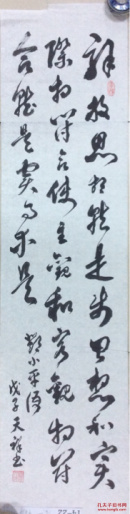 解放思想就是使思想和实
际相符合使主观和客观相符
合就是实事求是
邓小平语
戊子天祥书
22-61